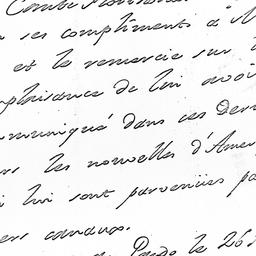 Comte
ses compliments à
et le remercie sur
plaisance de lui avoi
muniqué dans ces Der
les nouvelles d'Amer
lui sont parvenües pa
Pardo le 26